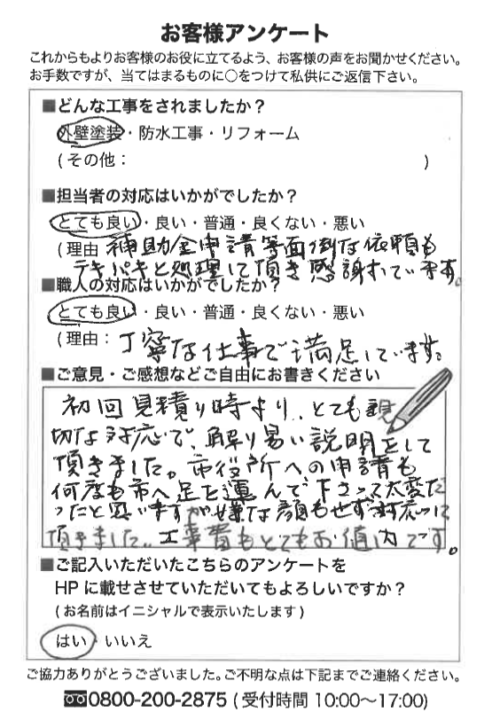 お客様アンケート
これからもよりお客様のお役に立てるよう、お客様の声をお聞かせください。
お手数ですが、当てはまるものに○をつけて私供にご返信下さい。
■どんな工事をされましたか？
外壁塗装・防水工事・リフォーム
(その他：　　　)
■担当者の対応はいかがでしたか？
とても良い・良い・普通・良くない・悪い
(理由 補助金申請等面倒な依頼も
テキパキと処理して頂き感謝しています。
■職人の対応はいかがでしたか？
とても良い・良い・普通・良くない・悪い
(理由：丁寧な仕事で満足しています。
■ご意見・ご感想などご自由にお書きください
初回見積り時より、とても親
切な対応で、解り易い説明をして
頂きました。市役所への申請も
何度も市へ足を運んで下さって大変だ
ったと思いますが嫌な顔もせず対応して
頂きました。工事費もとてもお値打です。
■ご記入いただいたこちらのアンケートを
HPに載せさせていただいてもよろしいですか？
(お名前はイニシャルで表示いたします)
はい・いいえ
ご協力ありがとうございました。ご不明な点は下記までご連絡ください。
0800-200-2875 (受付時間 10:00〜17:00)